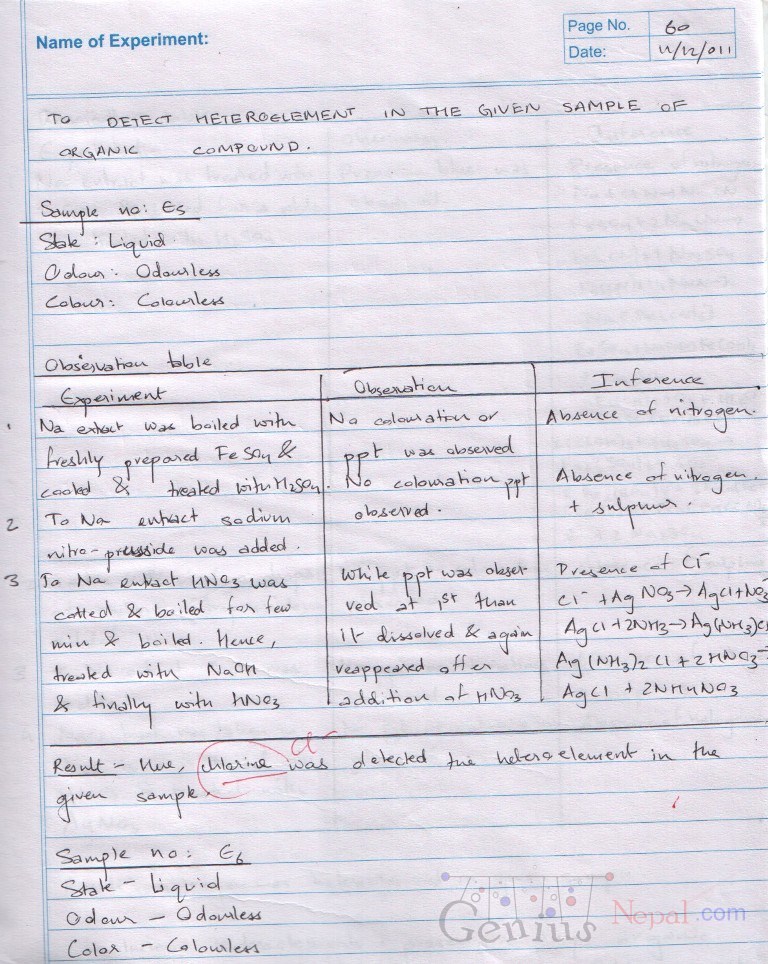 Name of Experiment:
Page No. 60
Date: 11/12/011
TO DETECT HETEROELEMENT IN THE GIVEN SAMPLE OF
ORGANIC COMPOUND.
Sample no: E5
State : Liquid
Odour : Odourless
Colour : Colourless
Observation table
Experiment
Observation
Inference
1. Na extract was boiled with
freshly prepared FeSO4 &
cooled & treated with H2SO4.
No colouration or
ppt was observed
Absence of nitrogen.
2 To Na extract sodium
nitro-prusside was added.
No colouration ppt
observed.
Absence of nitrogen.
+ sulphur.
3 To Na extract HNO3 was
& boiled for few
min & boiled. Hence,
treated with NaOH
& finally with HNO3
White ppt was obser-
ved at 1st than
it dissolved & again
reappeared after
addition of HNO3
Presence of Cl-
Cl- + AgNO3 → AgCl + NO3-
AgCl + 2NH3 → Ag(NH3)2Cl
Ag(NH3)2Cl + 2HNO3 →
AgCl + 2NH4NO3
Cl-
Result - Hue, chlorine was detected the heteroelement in the
given sample.
Sample no : E6
State - Liquid
Odour - Odourless
Color - Colourless
Genius Nepal.com